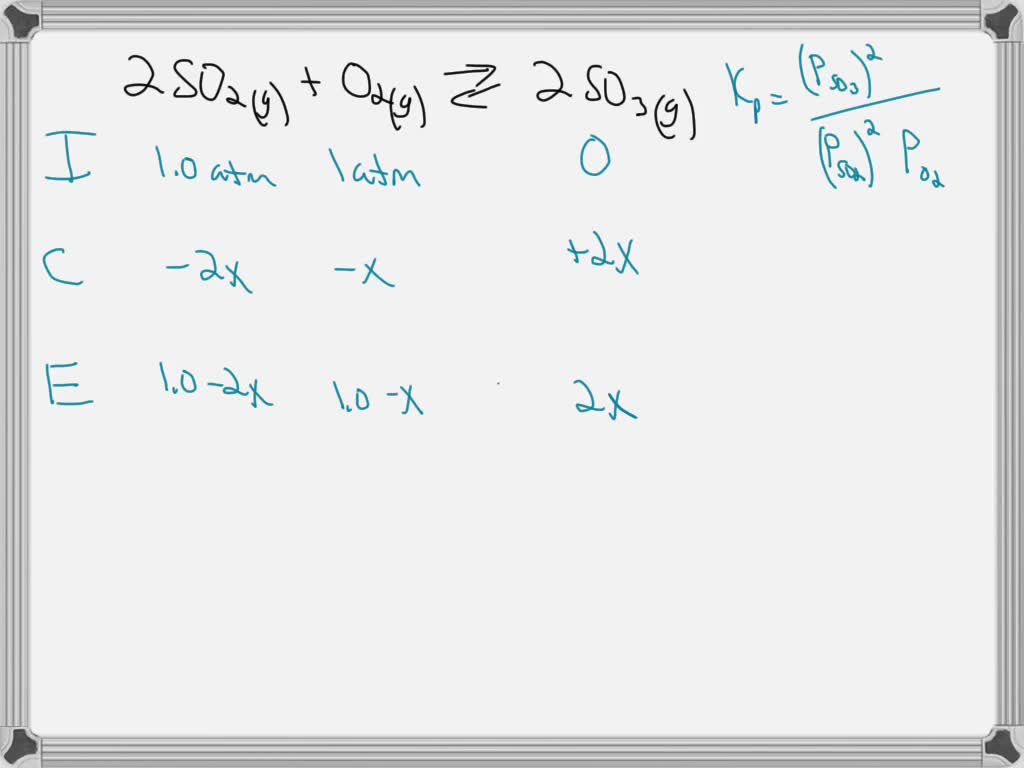 2SO₂(g) + O₂(g) ⇌ 2SO₃(g) Kp = (P_SO₃)² / (P_SO₂)² P_O₂
I 1.0 atm 1 atm 0
C -2x -x +2x
E 1.0 -2x 1.0 -x 2x